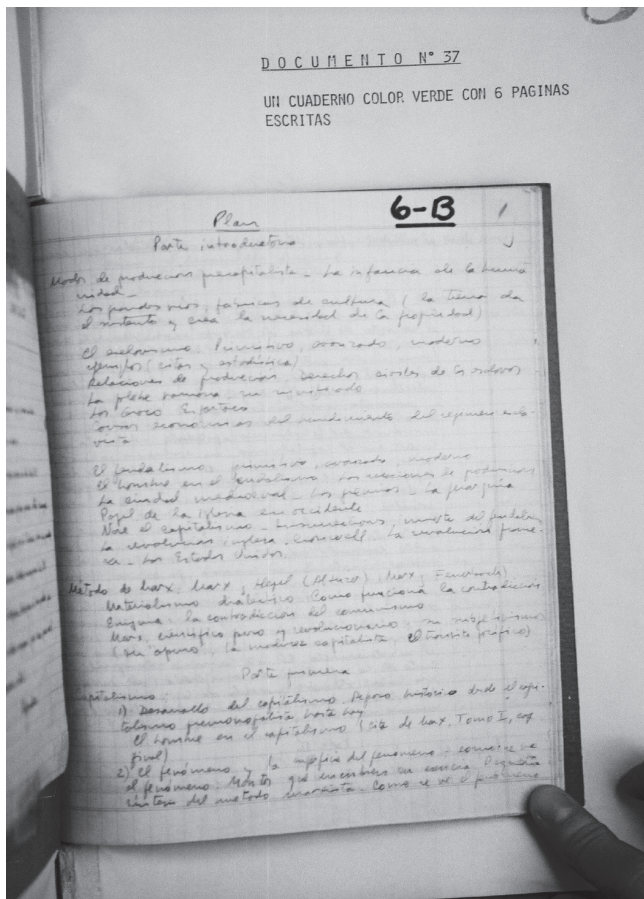 DOCUMENTO N° 37
UN CUADERNO COLOR VERDE CON 6 PAGINAS
ESCRITAS
6-B
1
Plan
Parte introductoria
Modos de produccion precapitalista - La infancia de la huma
nidad -
Los grandes rios, fabricas de cultura (la tierra da
el sustento y crea la necesidad de la propiedad)
El esclavismo. Primitivo, avanzado, moderno
ejemplos (citas y estadistica)
Relaciones de produccion, derechos civiles de los esclavos
La plebe romana, un
Los Graco Espartaco
Causas economicas del hundimiento del regimen escla-
vista
El feudalismo, primitivo, avanzado, moderno
El hombre en el feudalismo. Las relaciones de produccion
La ciudad medioeval - Los gremios - La jerarquia
Papel de la iglesia en occidente
Nace el capitalismo - Insurrecciones, muerte del feudalis
La revolucion inglesa, Cromwell. La revolucion france-
sa - Los Estados Unidos.
Método de Marx, Marx y Hegel Marx y Feuerbach)
Materialismo dialéctico Como funciona la contradiccion
Enigma: la contradiccion del comunismo
Marx, cientifico puro y revolucionario, su subjetivismo
(su apuro, la madurez capitalista el transito pacifico)
Parte primera
Capitalismo
1) Desarrollo del capitalismo. Repaso historico desde el capi-
talismo premonopolista hasta hoy
El hombre en el capitalismo (cita de Marx, Tomo I, cap
final)
2) El fenómeno y la del fenomeno - como se ve
el fenomeno. que encubren su esencia. Pequeña
sintesis del metodo marxista. Como se ve el fenómeno